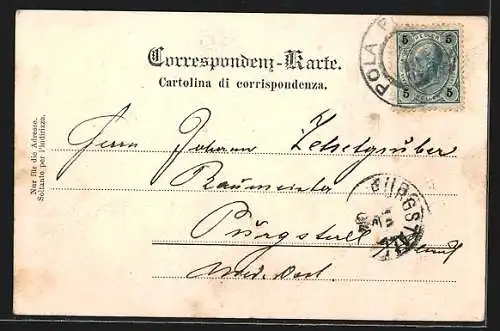 Correspondenz-Karte.
Cartolina di corrispondenza.
Nur für die Adresse.
Soltanto per l'indirizzo.
5 5
5 5
POLA
Herrn Johann Zehetgruber
Baumeister
Purgstall
PURGSTALL
Nied. Oest